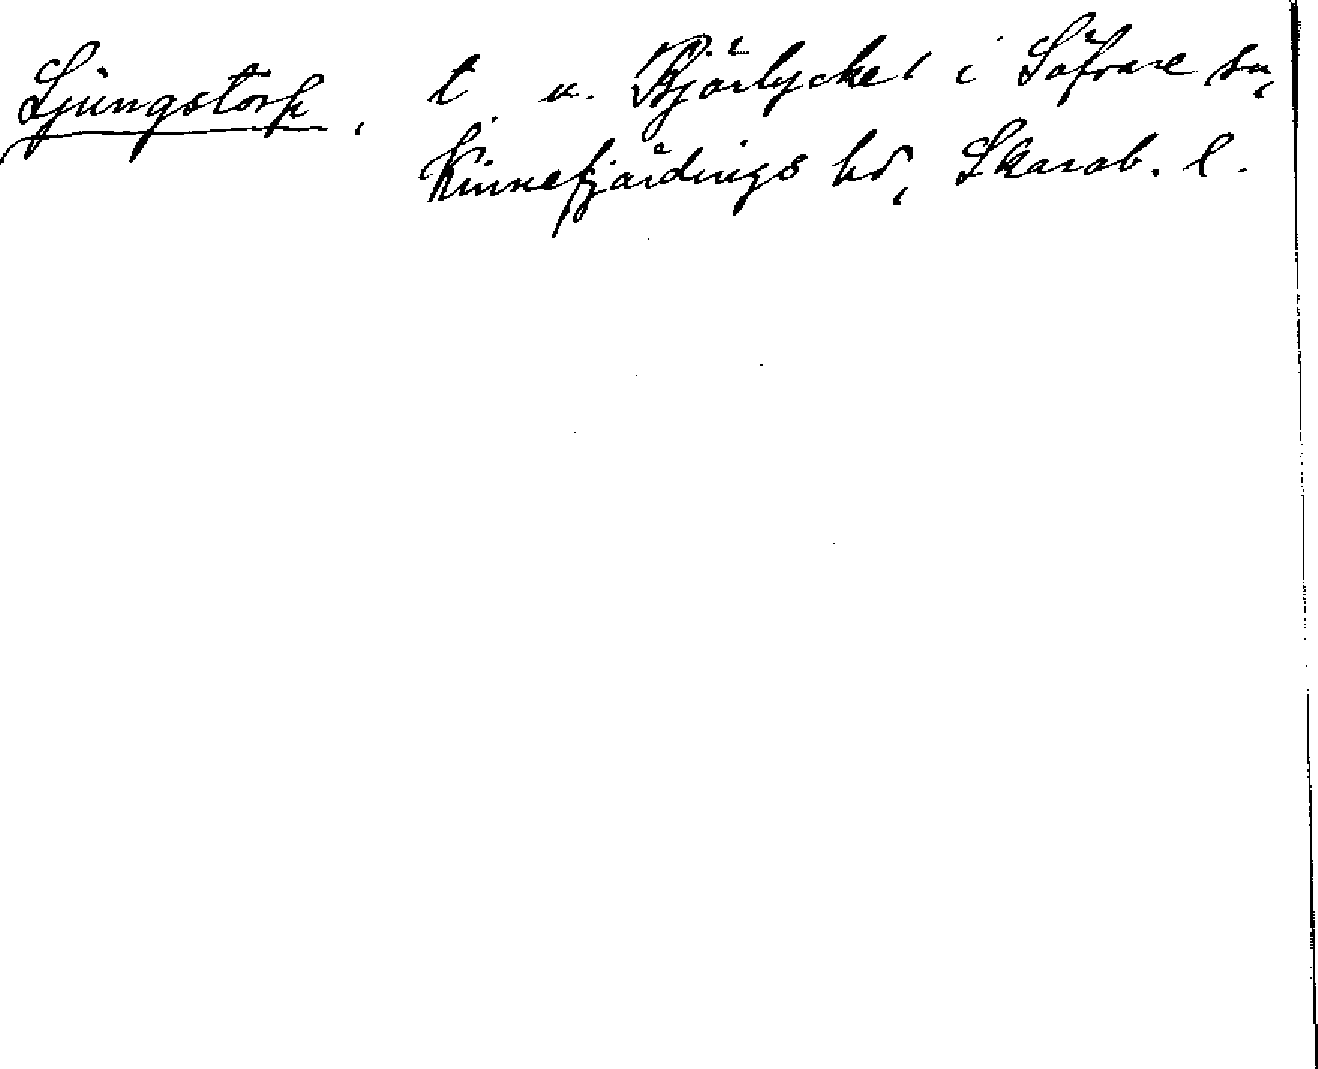 Ljungstorp, t u. Bjärlycke i Säfvare sn,
Kinnefjärdings hd, Skarab. l.